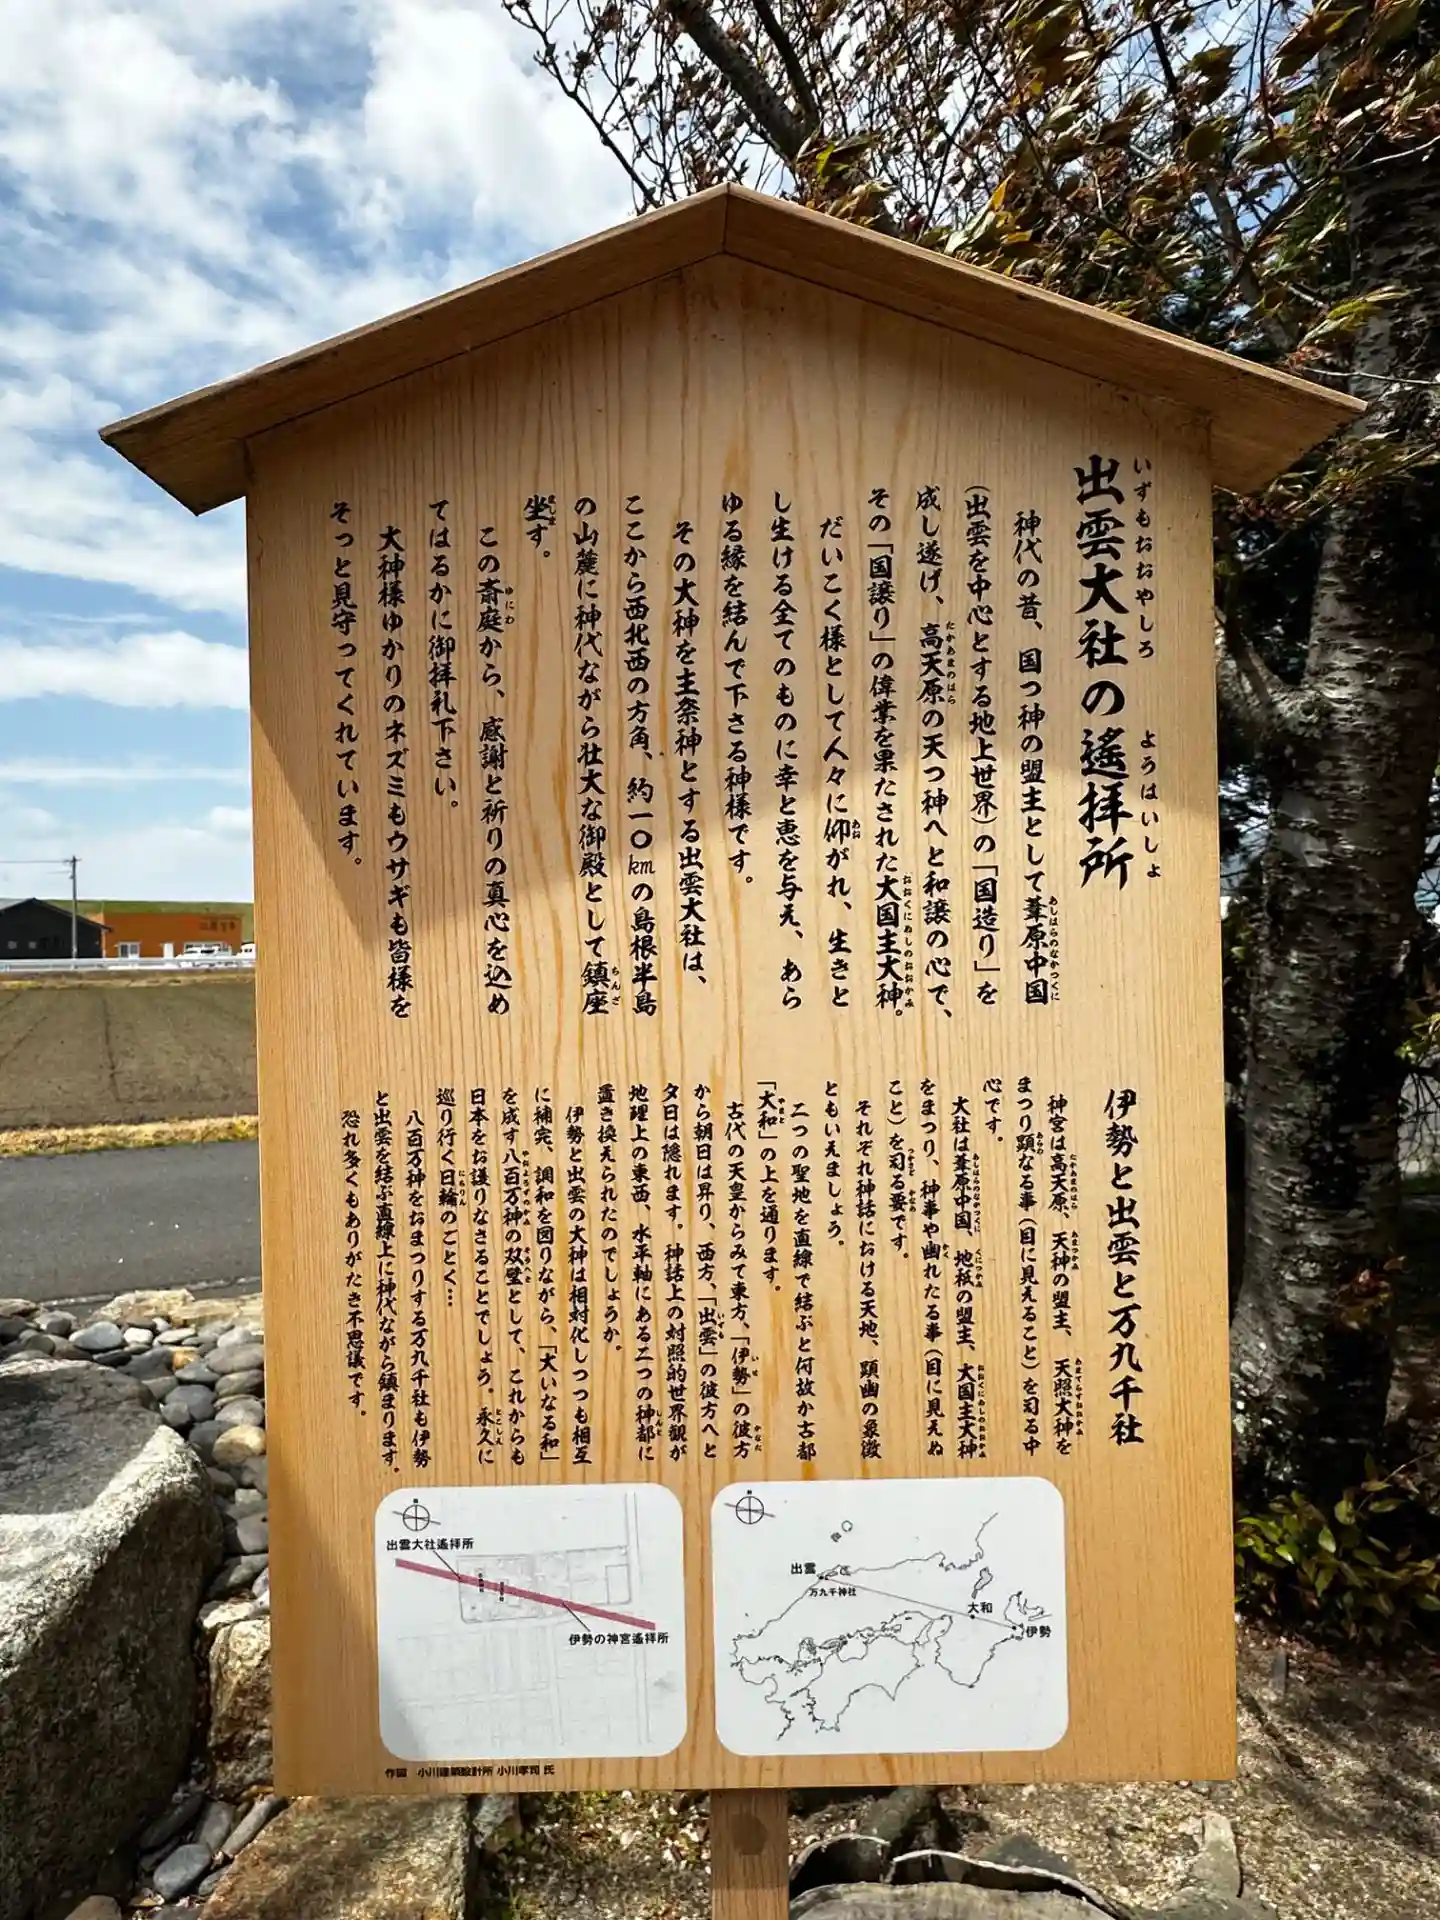 出雲大社の遙拝所
いずもおおやしろ ようはいしょ
神代の昔、国つ神の盟主として葦原中国
あしはらのなかつくに
(出雲を中心とする地上世界)の「国造り」を
成し遂げ、高天原の天つ神へと和譲の心で、
たかあまのはら
その「国譲り」の偉業を果たされた大国主大神。
おおくにぬしのおおかみ
だいこく様として人々に仰がれ、生きと
あお
し生ける全てのものに幸と恵を与え、あら
ゆる縁を結んで下さる神様です。
その大神を主祭神とする出雲大社は、
ここから西北西の方角、約一〇㎞の島根半島
の山麓に神代ながら壮大な御殿として鎮座
ちんざ
坐す。
ましま
この斎庭から、感謝と祈りの真心を込め
ゆにわ
てはるかに御拝礼下さい。
大神様ゆかりのネズミもウサギも皆様を
そっと見守ってくれています。
伊勢と出雲と万九千社
神宮は高天原、天神の盟主、天照大神を
たかあまのはら あまつかみ あまてらすおおかみ
まつり顕なる事(目に見えること)を司る中
あらわ
心です。
大社は葦原中国、地祇の盟主、大国主大神
あしはらのなかつくに くにつかみ おおくにぬしのおおかみ
をまつり、神事や幽れたる事(目に見えぬ
かく
こと)を司る要です。
つかさど かなめ
それぞれ神話における天地、顕幽の象徴
ともいえましょう。
二つの聖地を直線で結ぶと何故か古都
「大和」の上を通ります。
やまと
古代の天皇からみて東方、「伊勢」の彼方
いせ かなた
から朝日は昇り、西方、「出雲」の彼方へと
いずも
夕日は隠れます。神話上の対照的世界観が
地理上の東西、水平軸にある二つの神都に
しんと
置き換えられたのでしょうか。
伊勢と出雲の大神は相対化しつつも相互
に補完、調和を図りながら、「大いなる和」
を成す八百万神の双璧として、これからも
やおよろずのかみ そうへき
日本をお護りなさることでしょう。永久に
とこしえ
巡り行く日輪のごとく…
にちりん
八百万神をおまつりする万九千社も伊勢
と出雲を結ぶ直線上に神代ながら鎮まります。
恐れ多くもありがたき不思議です。
出雲大社遙拝所
伊勢の神宮遙拝所
出雲
万九千神社
大和
伊勢
作図 小川建築設計所 小川孝司 氏